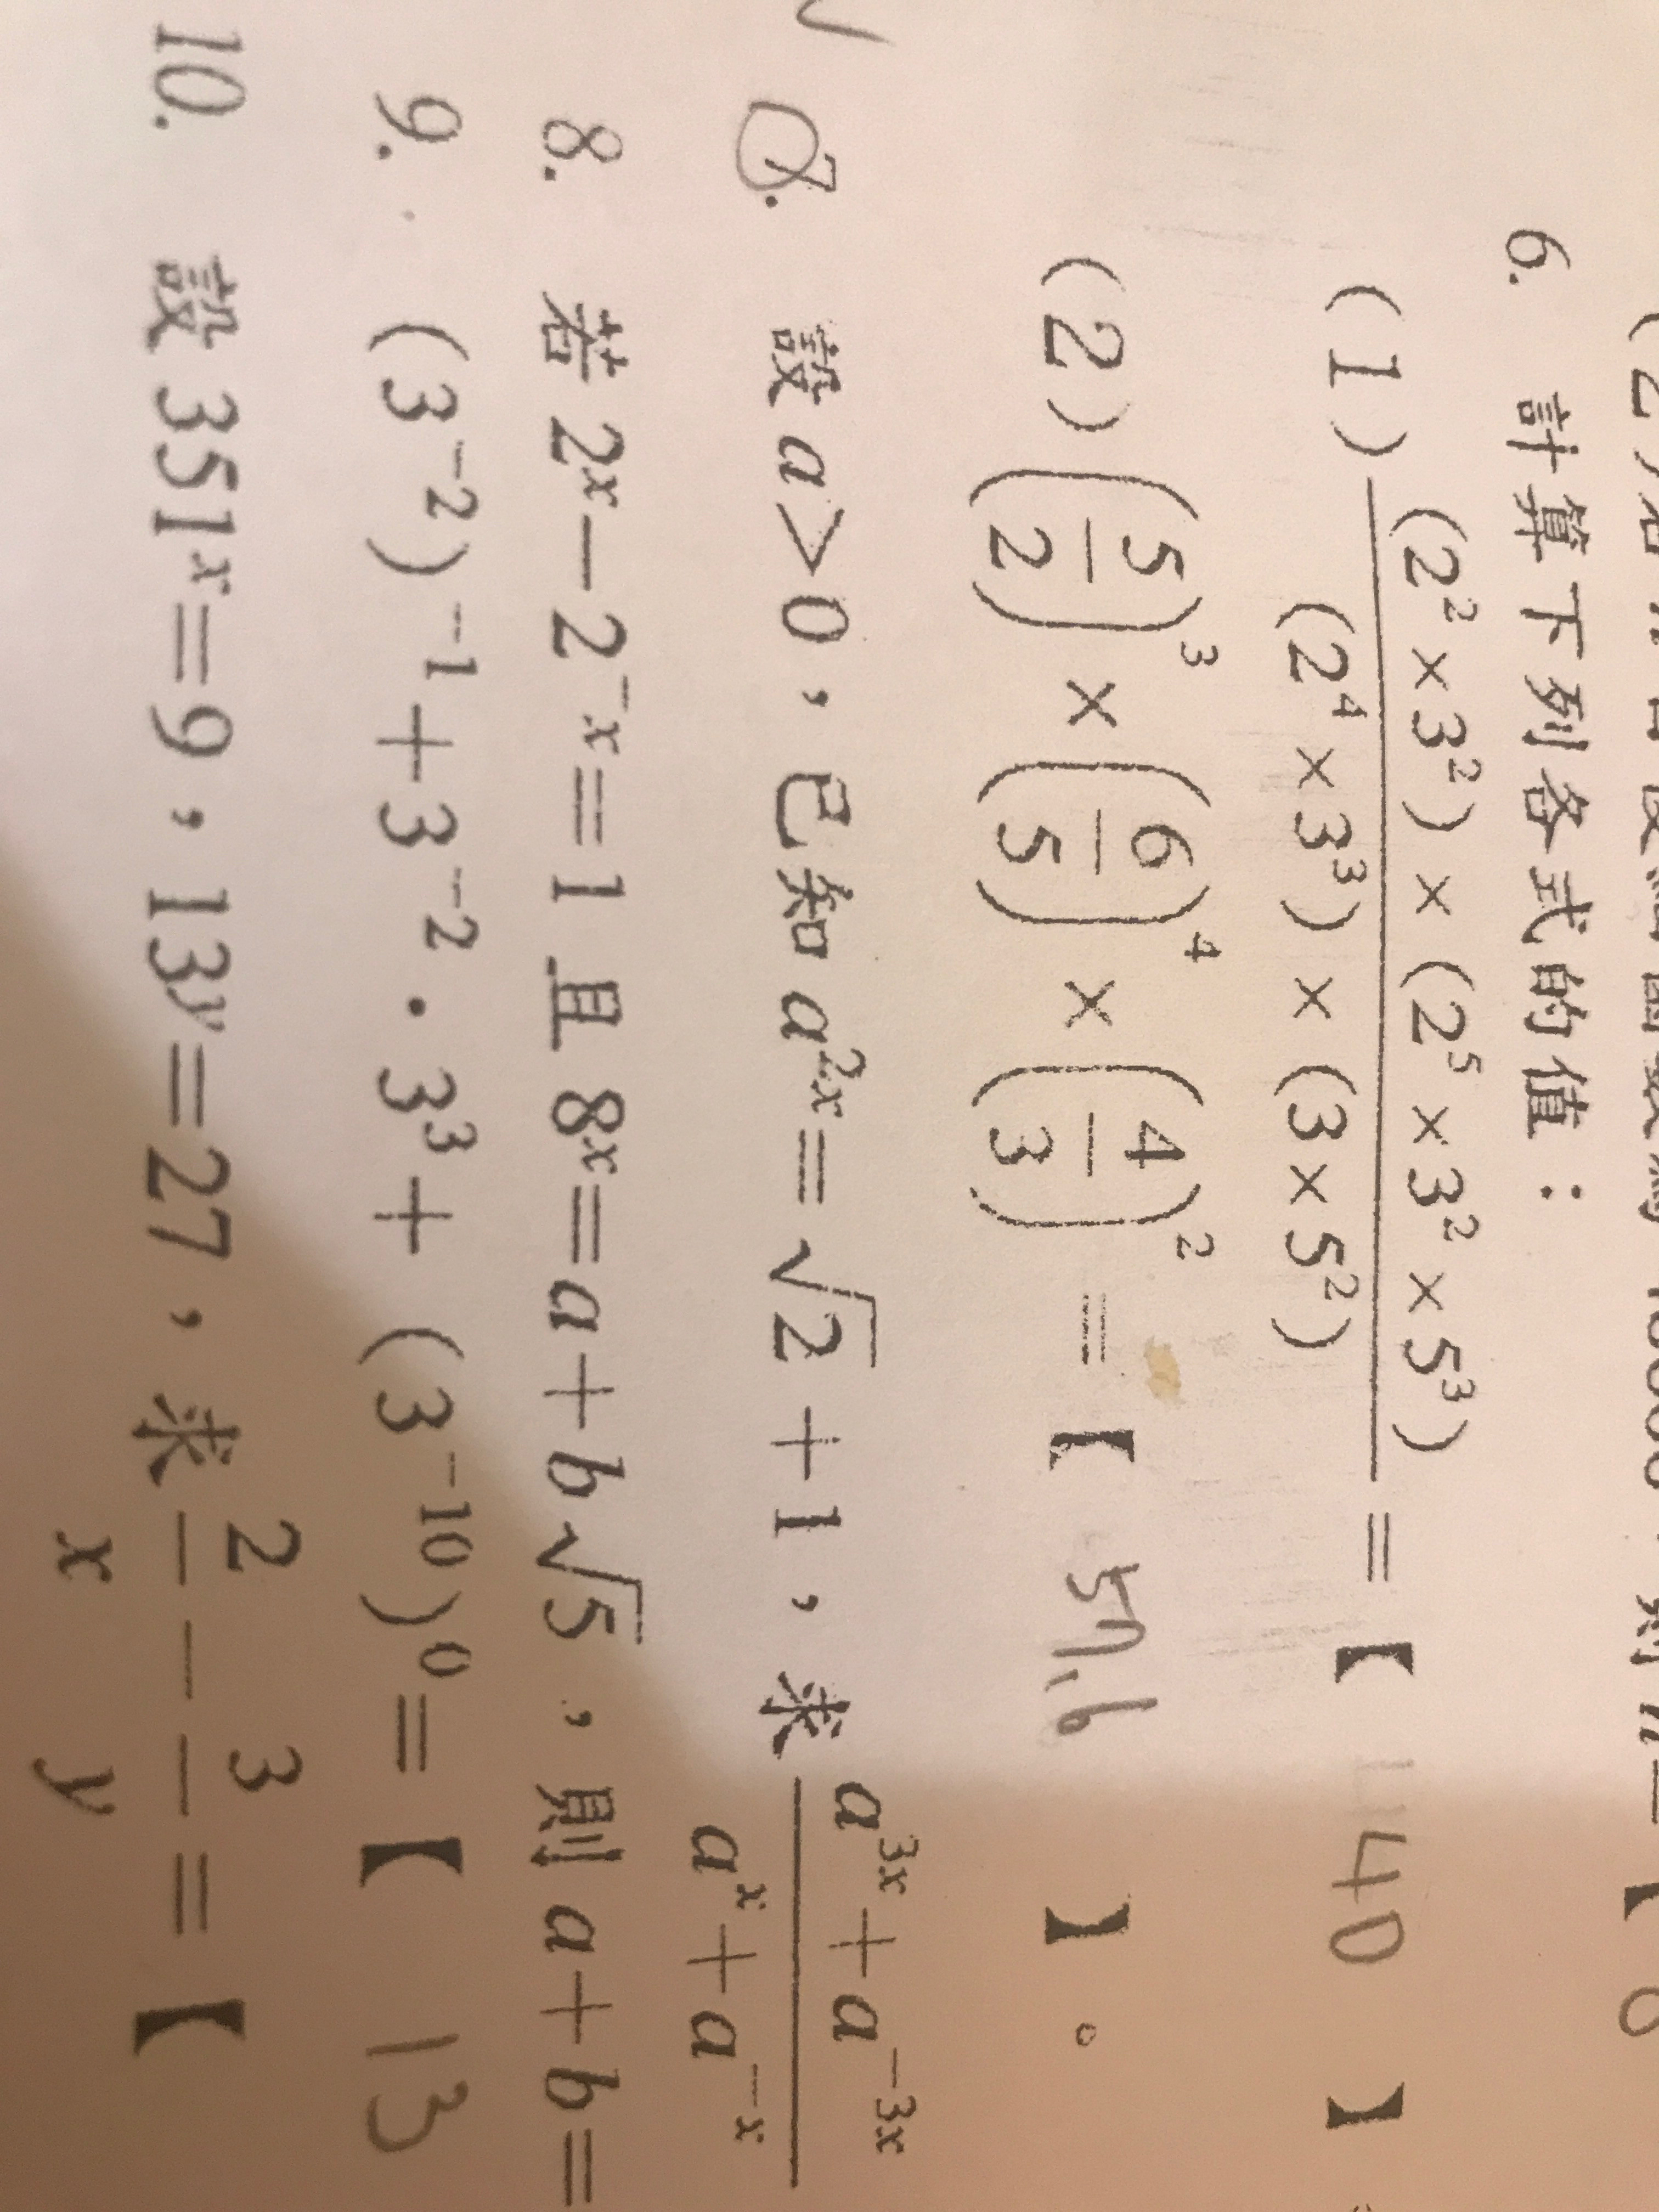 6. 計算下列各式的值：
(1) (2² × 3²) × (2⁵ × 3² × 5³) / (2⁴ × 3³) × (3 × 5²) = 【 40 】
(2) (5/2)³ × (6/5)⁴ × (4/3)² = 【 57.6 】。
7. 設 a > 0，已知 a²ˣ = √2 + 1，求 (a³ˣ + a⁻³ˣ) / (aˣ + a⁻ˣ)
8. 若 2ˣ − 2⁻ˣ = 1 且 8ˣ = a + b√5，則 a + b =
9. (3⁻²)⁻¹ + 3⁻² · 3³ + (3⁻¹⁰)⁰ = 【 13
10. 設 351ˣ = 9，13ʸ = 27，求 2/x − 3/y = 【